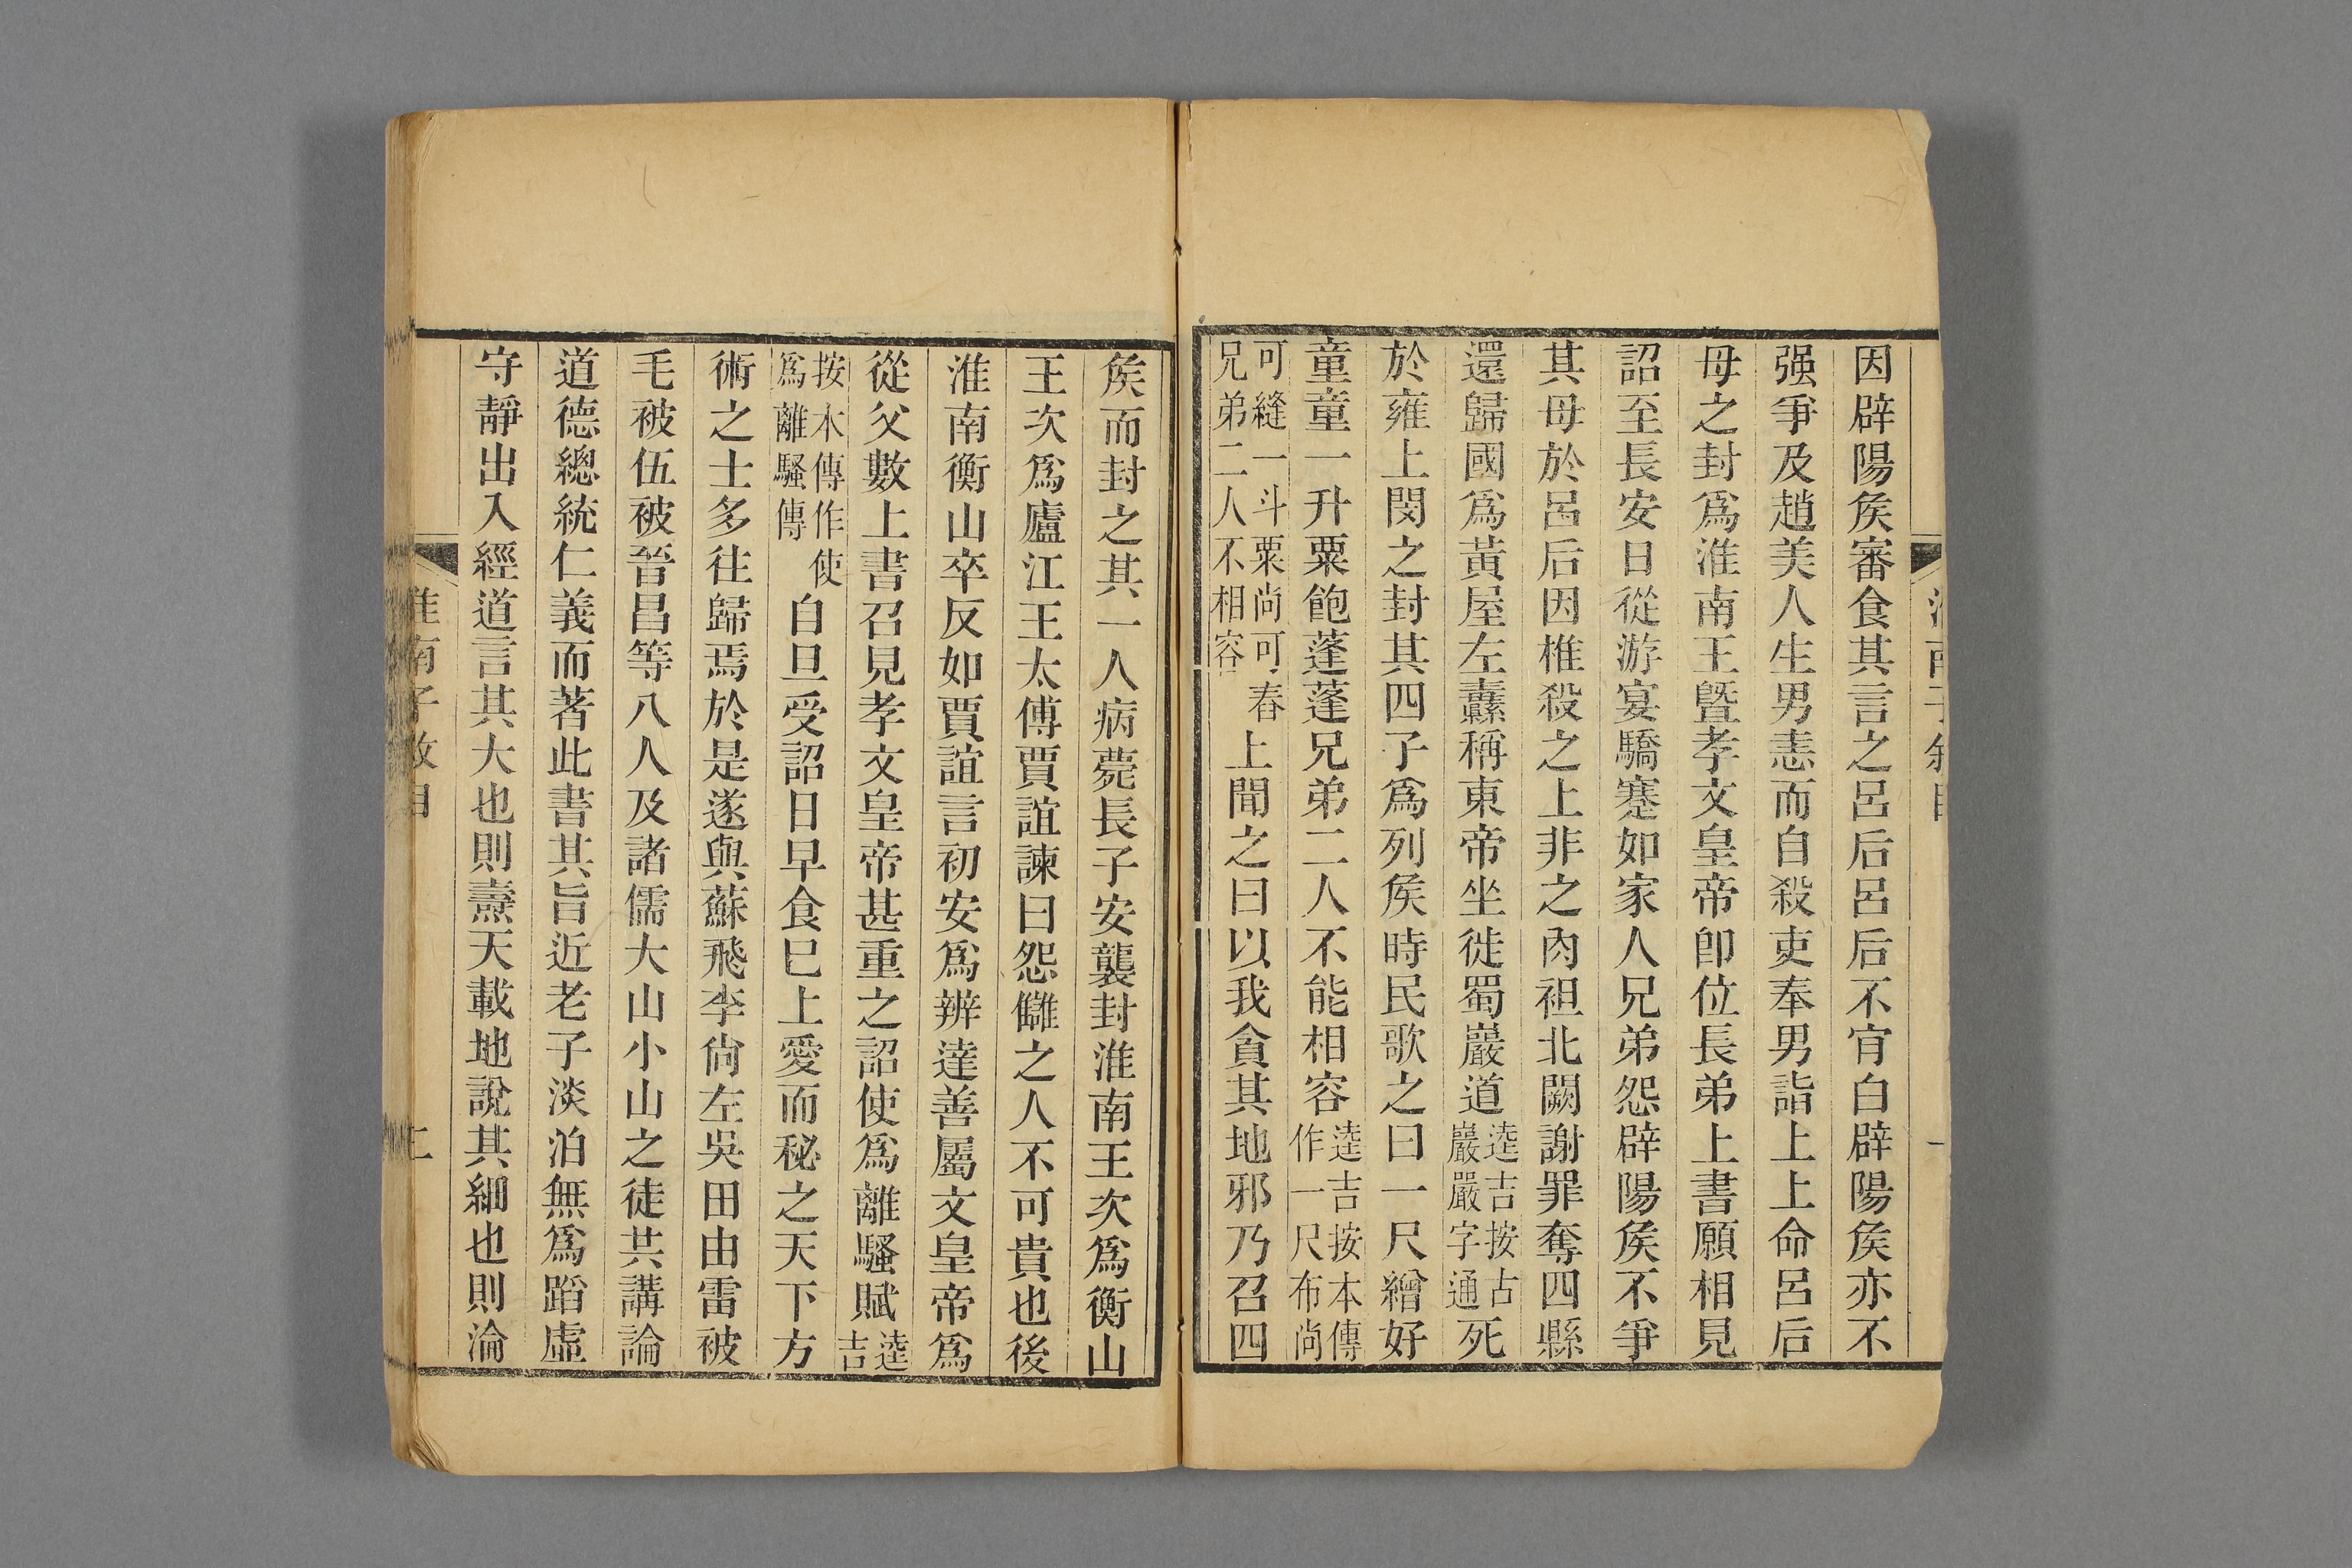 因辟陽矦審食其言之呂后呂后不肎白辟陽矦亦不
强爭及趙美人生男恚而自殺吏奉男詣上上命呂后
母之封爲淮南王暨孝文皇帝卽位長弟上書願相見
詔至長安日從游宴驕蹇如家人兄弟怨辟陽矦不爭
其母於呂后因椎殺之上非之肉袒北闕謝罪奪四縣
還歸國爲黃屋左纛稱東帝坐徙蜀嚴道逵吉按古巖嚴字通死
於雍上閔之封其四子爲列矦時民歌之曰一尺繒好
童童一升粟飽蓬蓬兄弟二人不能相容逵吉按本傳作一尺布尚
可縫一斗粟尚可舂兄弟二人不相容上聞之曰以我貪其地邪乃召四
矦而封之其一人病薨長子安襲封淮南王次爲衡山
王次爲廬江王太傅賈誼諫曰怨讎之人不可貴也後
淮南衡山卒反如賈誼言初安爲辨達善屬文皇帝爲
從父數上書召見孝文皇帝甚重之詔使爲離騷賦逵吉
按本傳作使爲離騷傳自旦受詔日早食已上愛而秘之天下方
術之士多往歸焉於是遂與蘇飛李尚左吳田由雷被
毛被伍被晉昌等八人及諸儒大山小山之徒共講論
道德總統仁義而著此書其旨近老子淡泊無爲蹈虛
守靜出入經道言其大也則燾天載地說其細也則淪